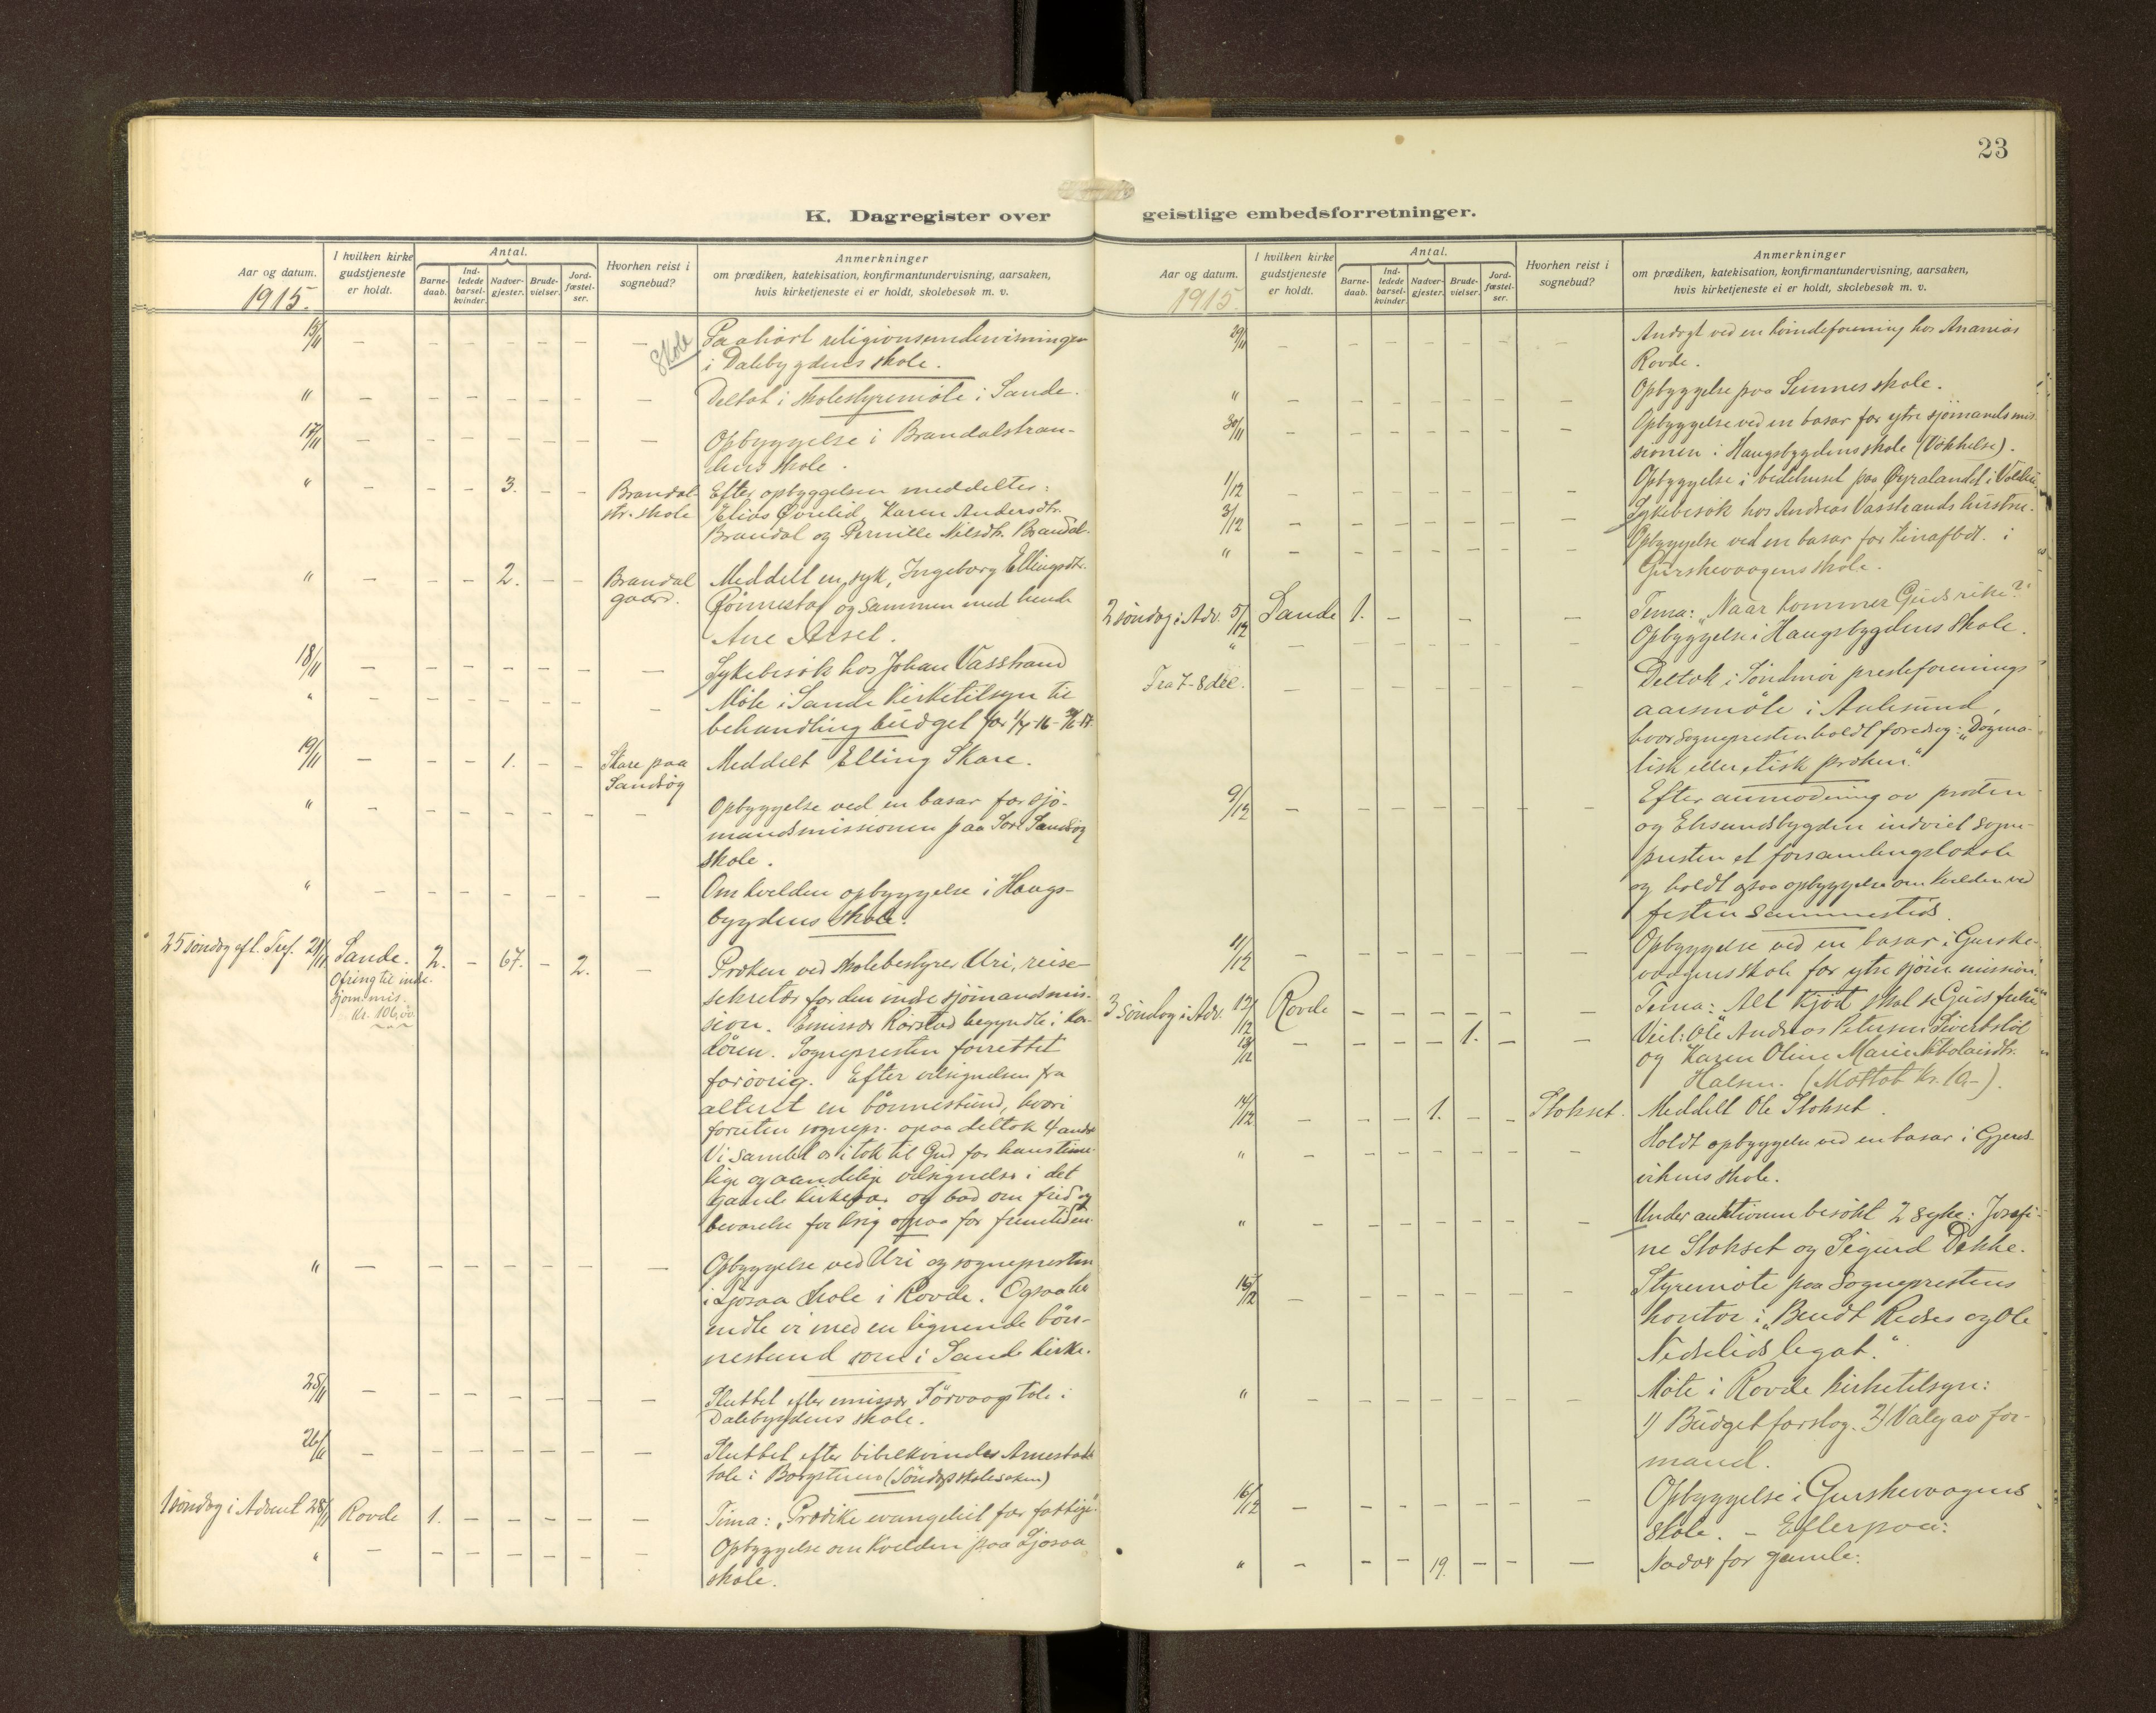 23
K. Dagregister over
geistlige embedsforretninger.
Aar og datum.
1915.
I hvilken kirke
gudstjeneste
er holdt.
Antal.
Barne-
daab.
Ind-
ledede
barsel-
kvinder.
Nadver-
gjester.
Brude-
vielser.
Jord-
fæstel-
ser.
Hvorhen reist i
sognebud?
Anmerkninger
om prædiken, katekisation, konfirmantundervisning, aarsaken,
hvis kirketjeneste ei er holdt, skolebesøk m. v.
15/11 – – – – – – – Skole Paahørt religionsundervisningen
i Dalebygdens skole.
" – – – – – – – Deltat i skolestyremøte i Sande.
17/11 – – – – – – – Opbyggelse i Brandalstran-
dens skole.
" – – – 3. – – Brandal- Efter opbyggelsen meddeltes:
str. skole Elias Øvrelid, Karen Andersdtr.
Brandal og Pernille Nilsdtr. Brandal.
" – – – 2. – – Brandal Meddelt en syk, Ingeborg Ellingsdtr.
gaard. Rønnestad og sammen med hende
Ane Aksel.
18/11 – – – – – – – Sykebesøk hos Johan Vasstrand
" – – – – – – – Møte i Sande kirketilsyn til
behandling budget for 1/7-16 – 30/6-17.
19/11 – – – 1. – – Skare paa Meddelt Elling Skare.
Sandsøy
" – – – – – – – Opbyggelse ved en basar for sjø-
mandsmissionen paa Søre Sandsøy
skole.
" – – – – – – – Om kvelden opbyggelse i Haugs-
bygdens skole.
25 søndag eft. Tref. 21/11 Sande. 2. – 67. – 2. – Præken ved skolebestyrer Uri, reise-
Ofring til indr.
sjøm. mis.
Kr. 106,00
sekretær for den indre sjømandsmis-
sion. Emissær Rørstad begyndte i kor-
døren. Sognepresten forrettet
forøvrig. Efter velsignelsen fra
alteret en bønnestund, hvori
foruten sognepr. ogsaa deltok 4 andre
Vi samlet os i tak til Gud for hans time-
lige og aandelige velsignelse i det
gamle kirkeaar og bad om fred og
bevarelse for krig ogsaa for fremtiden.
" – – – – – – – Opbyggelse ved Uri og sognepresten
i Ljøsaa skole i Rovde. Ogsaa her
endte vi med en lignende bøn-
nestund som i Sande kirke.
25/11 – – – – – – – Sluttet efter emissær Sørvaags tale i
Dalebygdens skole.
26/11 – – – – – – – Sluttet efter bibelkvinde Arnestads
tale i Borgstuen (Søndagsskolesaken)
1 søndag i Advent 28/11 Rovde 1. – – – – – Tema: "Prædike evangeliet for fattige."
" – – – – – – – Opbyggelse om kvelden paa Ljøsaa
skole.
Aar og datum.
1915.
I hvilken kirke
gudstjeneste
er holdt.
Antal.
Barne-
daab.
Ind-
ledede
barsel-
kvinder.
Nadver-
gjester.
Brude-
vielser.
Jord-
fæstel-
ser.
Hvorhen reist i
sognebud?
Anmerkninger
om prædiken, katekisation, konfirmantundervisning, aarsaken,
hvis kirketjeneste ei er holdt, skolebesøk m. v.
29/11 – – – – – – – Andagt ved en kvindeforening hos Ananias
Rovde.
" – – – – – – – Opbyggelse paa Sunnes skole.
30/11 – – – – – – – Opbyggelse ved en basar for ytre sjømandsmis-
sionen i Haugsbygdens skole (Vækkelse).
1/12 – – – – – – – Opbyggelse i bedehuset paa Øyralandet i Volden.
3/12 – – – – – – – Sykebesøk hos Andreas Vasstrands hustru.
" – – – – – – – Opbyggelse ved en basar for Kinafbdt. i
Gurskevaagens skole.
2 søndag i Adv. 5/12 Sande 1. – – – Tema: "Naar kommer Guds rike?"
" – – – – – – – Opbyggelse i Haugsbygdens skole.
Fra 7-8 dec. – – – – – – – Deltok i Søndmør presteforenings
aarsmøte i Aalesund,
hvor sognepresten holdt foredrag: "Dogma-
tisk eller etisk præken."
9/12 – – – – – – – Efter anmodning av provsten
og Eksundsbygden indviet sogne-
presten et forsamlingslokale
og holdt ogsaa opbyggelse om kvelden ved
festen sammesteds.
11/12 – – – – – – – Opbyggelse ved en basar i Gurske-
vaagens skole for ytre sjøm. mission.
3 søndag i Adv. 12/12 Rovde – – – – – – Tema: "Alt kjød skal se Guds frelse"
13/12 – – – – 1. – – Viet: Ole Andreas Petersen Sivertstøl
og Karen Oline Marie Nikolaisdtr.
Halsen. (Mottat kr. 10.–).
14/12 – – – 1. – – Stokset. Meddelt Ole Stokset.
" – – – – – – – Holdt opbyggelse ved en basar i Gjerds-
vikens skole.
" – – – – – – – Under auktionen besøkt 2 syke: Josefi-
ne Stokset og Sigurd Dekke.
15/12 – – – – – – – Styremøte paa sogneprestens
kontor i "Bendt Redses og Ole
Nedrelids legat."
" – – – – – – – Møte i Rovde kirketilsyn:
1) Budgetforslag. 2) Valg av for-
mand.
16/12 – – – – – – – Opbyggelse i Gurskevaagens
skole. – Efterpaa:
" – – – 19. – – – Nadver for gamle.